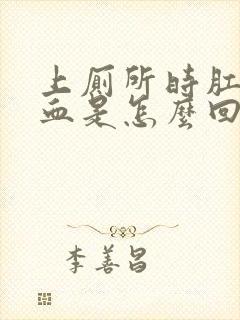 上厕所时肛
血是怎麼回
李善昌